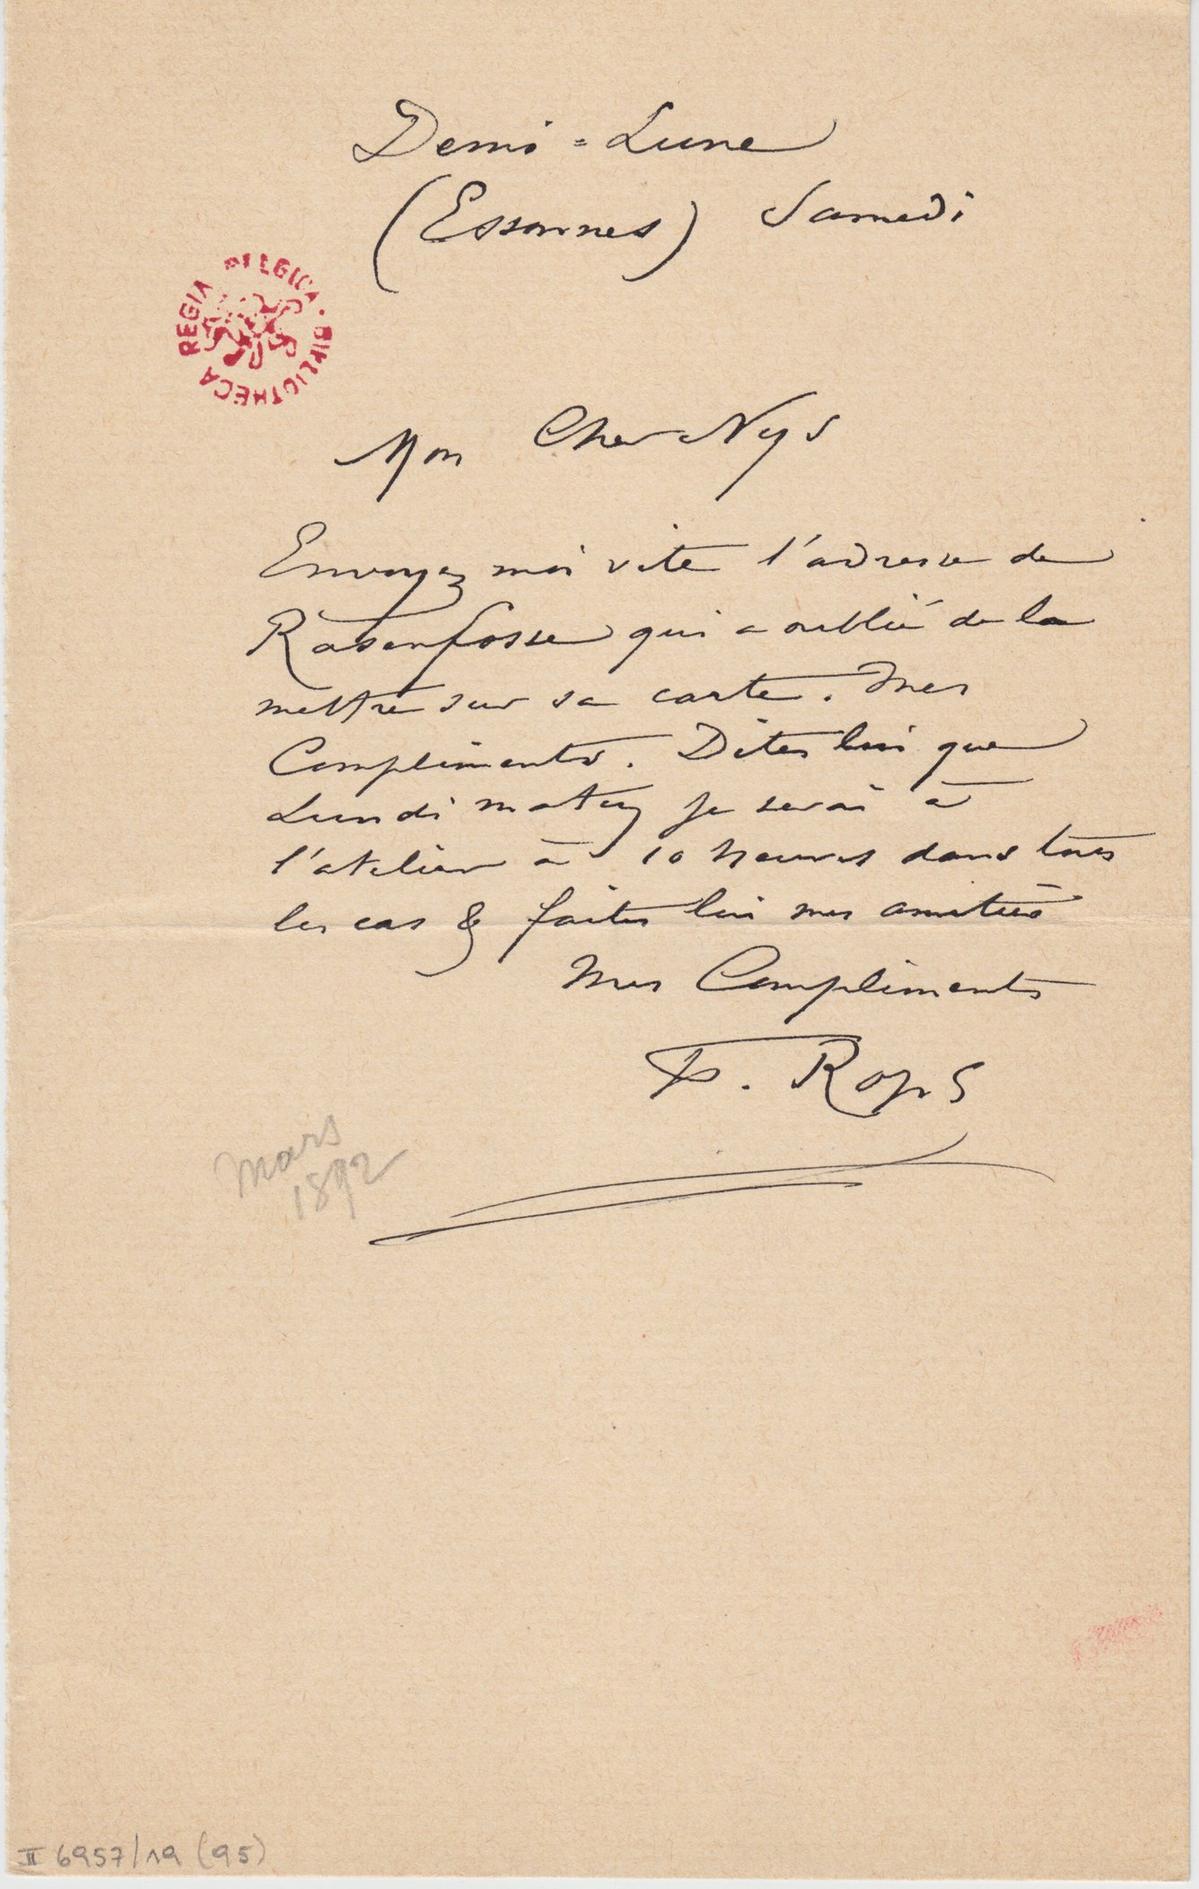 Demi = Lune
(Essonnes) Samedi
REGIA BELGICA · BIBLIOTHECA
Mon Cher Nys
Envoyez moi vite l'adresse de
Rassenfosse qui a oublié de la
mettre sur sa carte. Mes
Compliments. Dites lui que
Lundi matin je serai à
l'atelier à 10 heures dans tous
les cas & faites lui mes amitiés
Mes Compliments
F. Rops
Mars
1892
II 6957/19 (95)